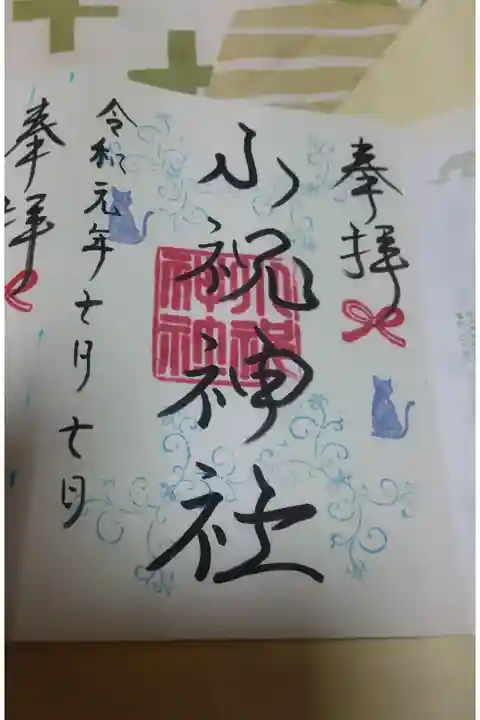 奉拝
小祝神社
令和元年七月七日
奉拝